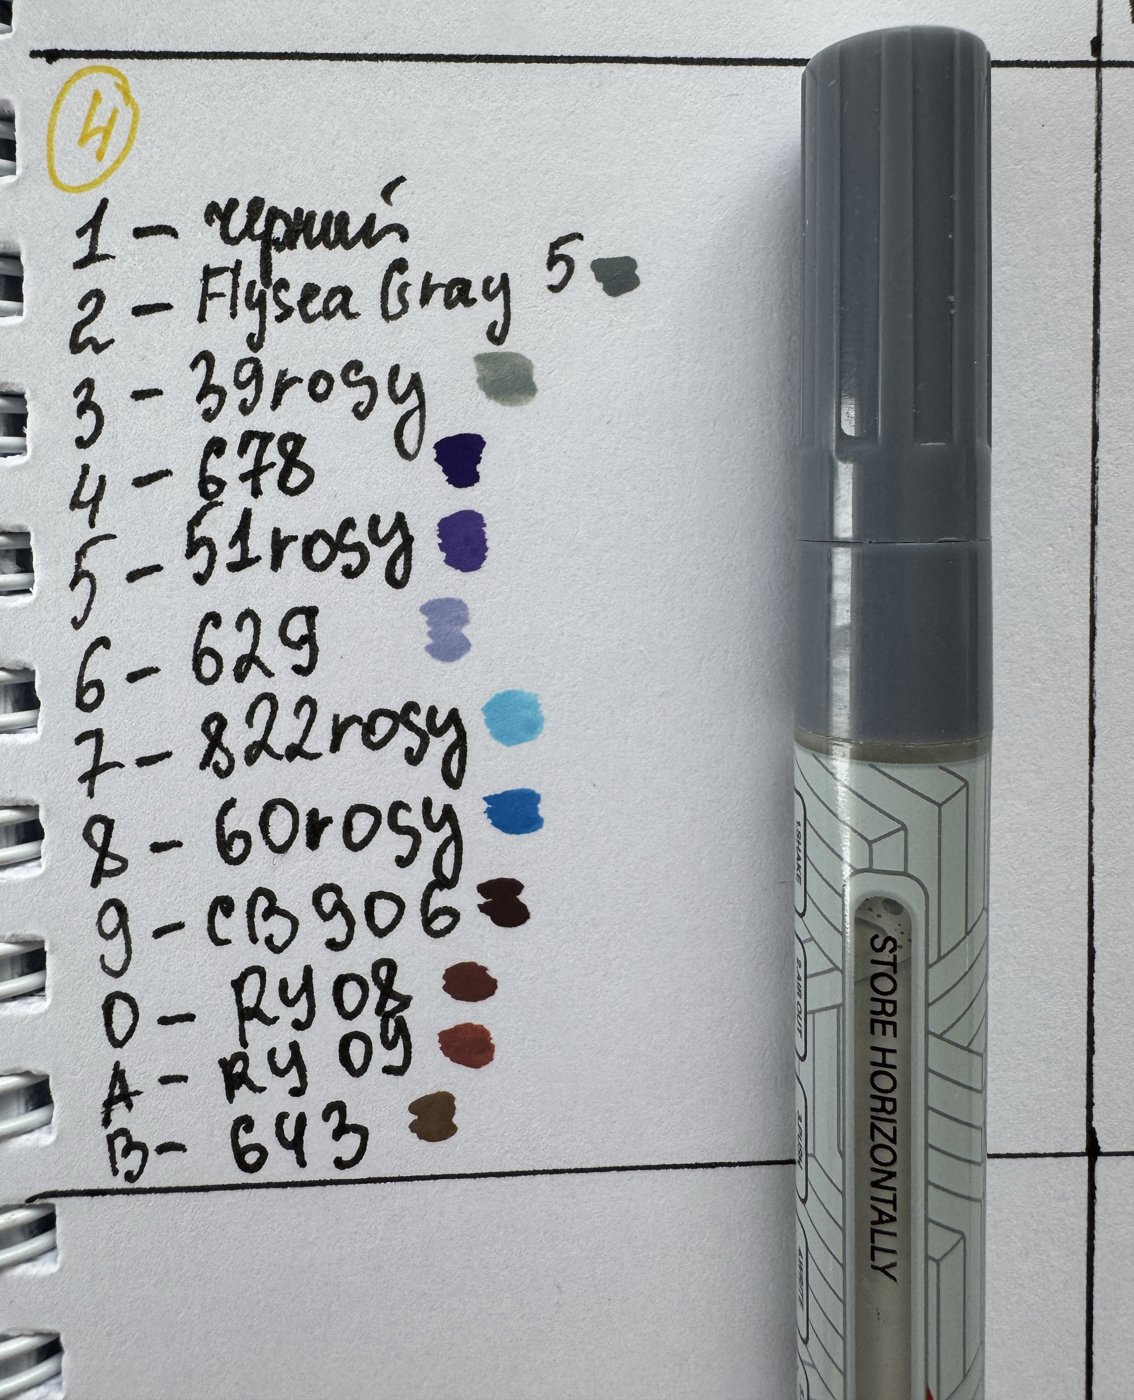 4
1 - черный
2 - Flysea Gray 5
3 - 39rosy
4 - 678
5 - 51rosy
6 - 629
7 - 822rosy
8 - 60rosy
9 - CB906
0 - RY08
A - RY 09
B - 643
STORE HORIZONTALLY
1.SHAKE